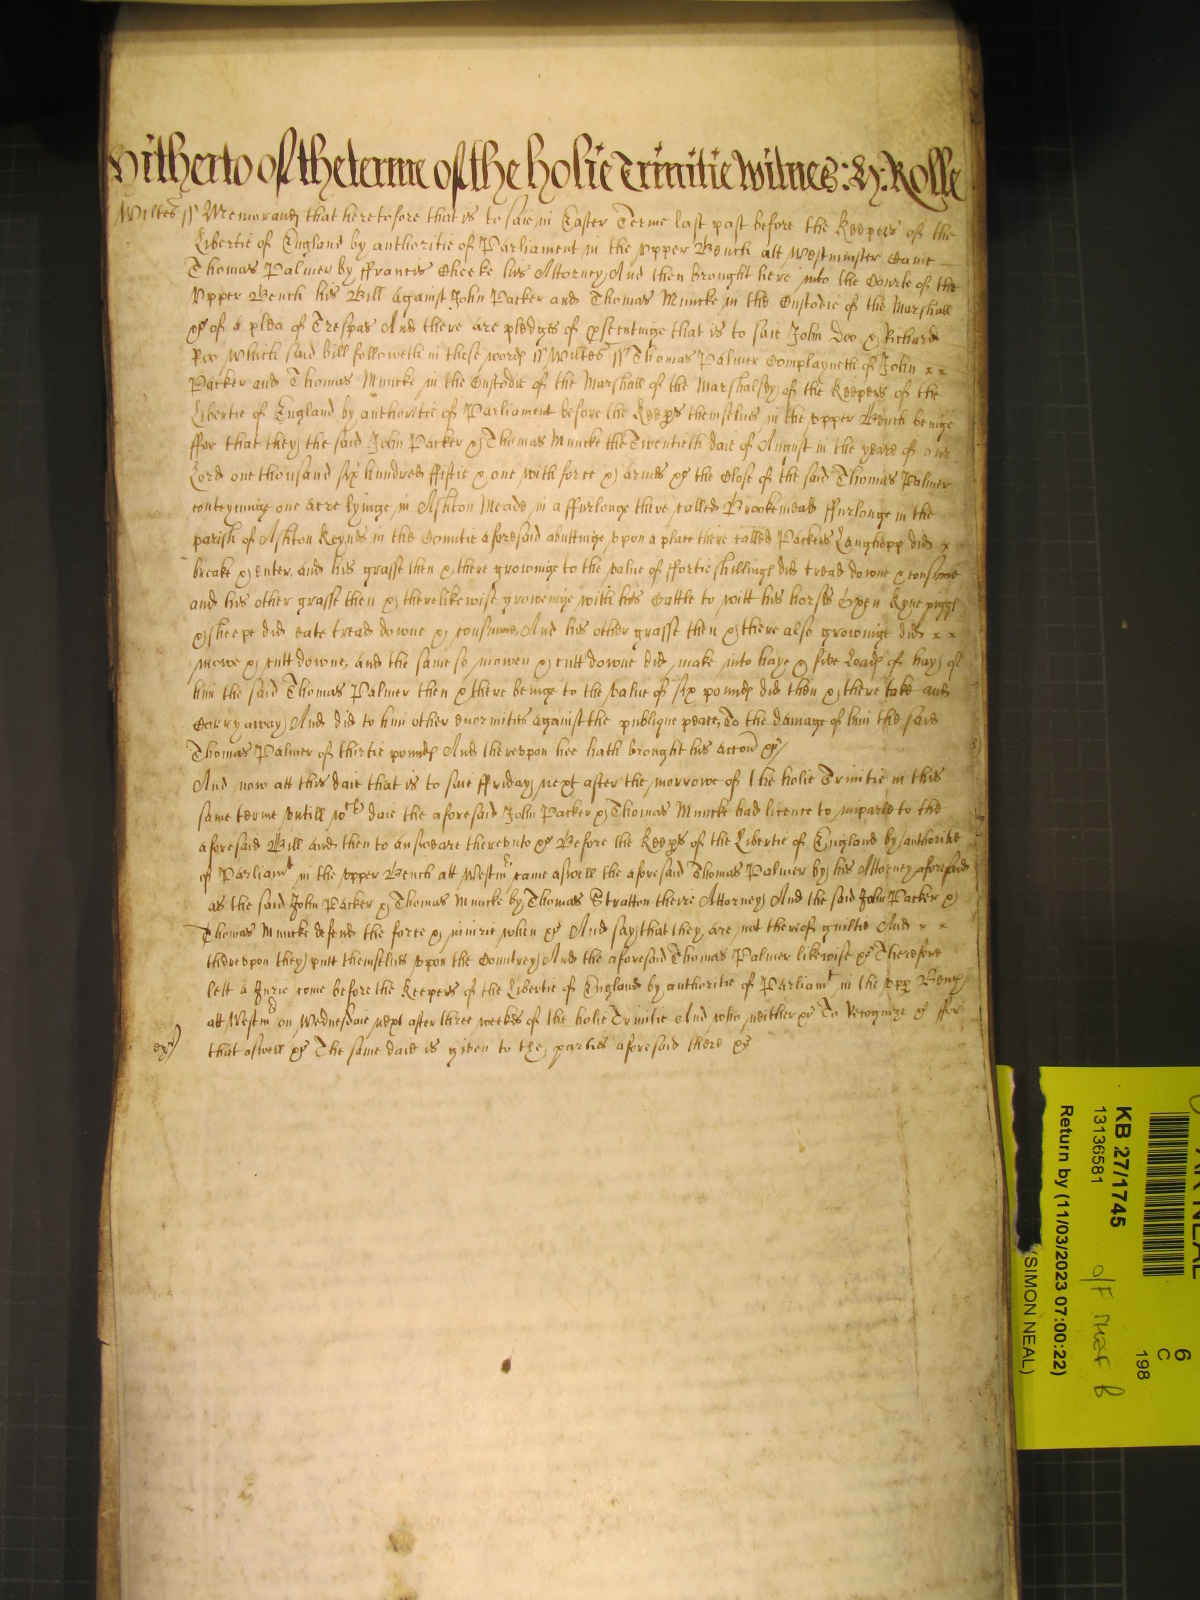 Hitherto of the terme of the holie Trinitie Witnes: H: Rolle
Wiltes ss Memorand that heretofore that is to saie in Easter Terme last past before the Keepers of the
Libertie of England by authoritie of Parliament in the vpper Bench att Westminster Came
Thomas Palmer by ffrancis Cheeke his Attorney And then brought here into the Courte of the
vpper Bench his Bill against John Packer and Thomas Muncke in the Custodie of the Marshall
&c of a plea of Trespas And there are pledges of psecutinge that is to saie John Doo & Richard
Roo which said bill followeth in these words ss Wiltes ss Thomas Palmer Complayneth of John x x
Packer and Thomas Muncke in the Custodie of the Marshall of the Marshalsey of the Keepers of the
Libertie of England by authoritie of Parliament before the Keeps themselues in the vpper Bench beinge
ffor that they the said John Packer & Thomas Muncke the Twentieth daie of August in the yeare of our
Lord one thousand six hundred ffiftie & one with force & armes &c the Close of the said Thomas Palmer
conteyninge one acre lyinge in Ashton Meade in a ffurlonge there called Brookemead ffurlonge in the
parish of Ashton Keynes in the Countie aforesaid abuttinge vpon a place there called Packers Langhopp did x
breake & enter and his grasse then & there growinge to the value of ffortie shillings did tread downe & consume
and his other grasse then & there likewise groweinge with his Cattle to witt his horses Oxen Kyne piggs
& sheepe did eate tread downe & consume And his other grasse then & there also growinge did x x
mowe & cutt downe and the same so mowen & cutt downe did make into haye & five Loads of hay of
him the said Thomas Palmer then & there beinge to the value of six pounds did then & there take and
Carry away And did to him other enormities against the publique peace To the damage of him the said
Thomas Palmer of thirtie pounds And therevpon hee hath brought his accon &c
And now att this daie that is to saie ffriday next after the morrowe of the holie Trinitie in this
same terme vntill wch daie the aforesaid John Packer & Thomas Muncke had licence to imparle to the
aforesaid Bill and then to answeare therevnto &c Before the Keeps of the Libertie of England by authoritie
of Parliamt in the vpper Bench att Westmr came aswell the aforesaid Thomas Palmer by his Attorney aforesaid
as the said John Packer & Thomas Muncke by Thomas Stratton theire Attorney And the said John Packer &
Thomas Muncke defend the force & iniurie when &c And say that they are not thereof guiltie And x x
therevpon they putt themselues vpon the Countrey And the aforesaid Thomas Palmer likewise &c Therefore
lett a Jurie come before the Keepers of the Libertie of England by authoritie of Parliamt in the vpp Bench
att Westmr on Wednesdaie next after three weekes of the holie Trinitie And who neither &c To Recognize &c ffor
that aswell &c The same daie is given to the parties aforesaid there &c
KB 27/1745
13136581
Return by (11/03/2023 07:00:22)
(SIMON NEAL)
6
C
198